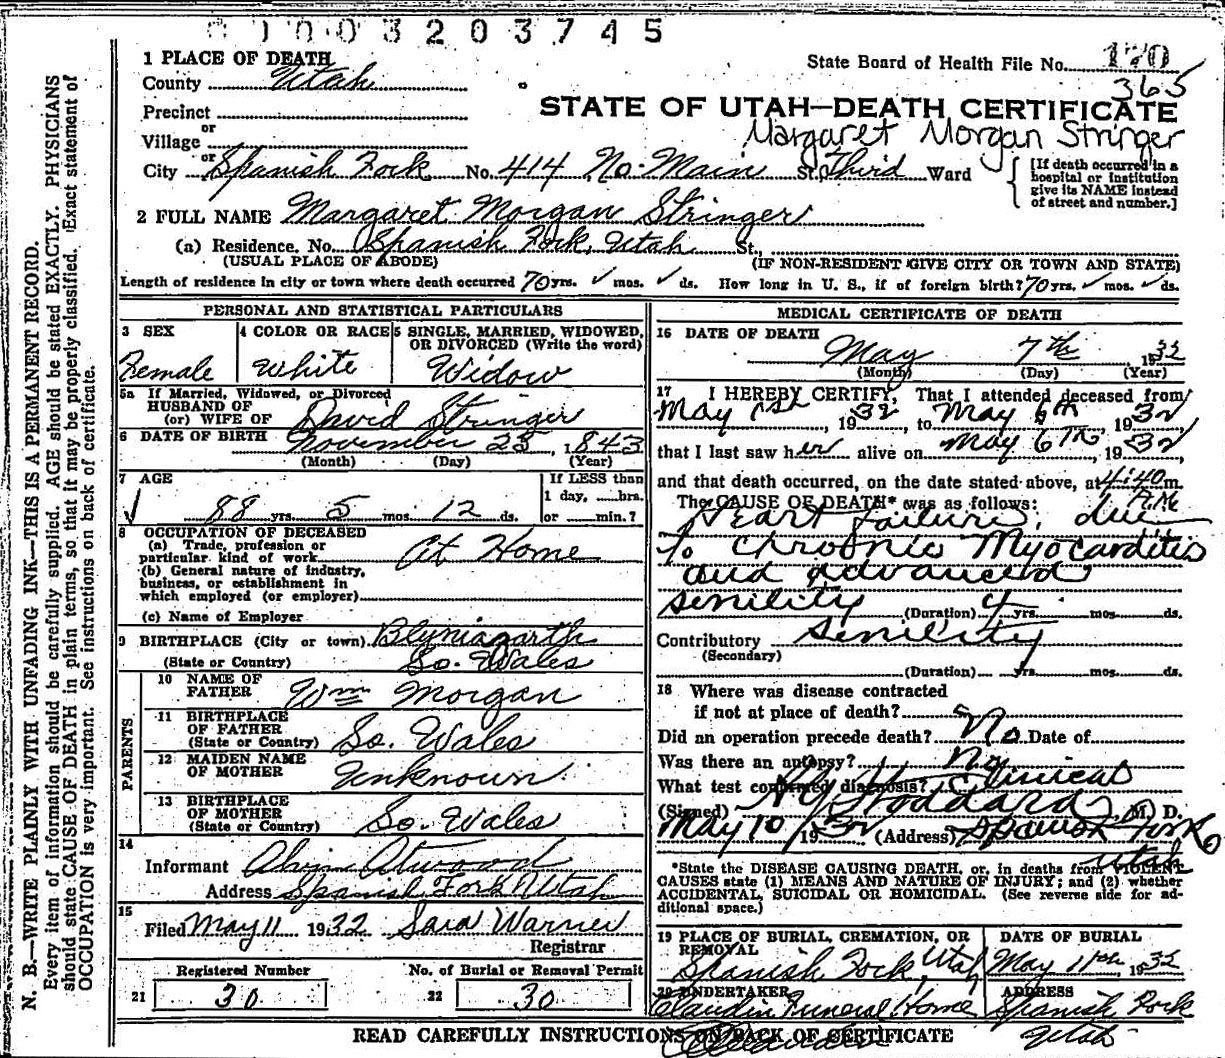 01003203745
1 PLACE OF DEATH
State Board of Health File No. 170
County Utah
365
STATE OF UTAH—DEATH CERTIFICATE
Precinct
Margaret Morgan Stringer
or
Village
or
City Spanish Fork No. 414 No. Main St, Third Ward
[If death occurred in a
hospital or institution
give its NAME instead
of street and number.]
2 FULL NAME Margaret Morgan Stringer
(a) Residence. No. Spanish Fork, Utah St.,
(USUAL PLACE OF ABODE) (IF NON-RESIDENT GIVE CITY OR TOWN AND STATE)
Length of residence in city or town where death occurred 70 yrs. ✓ mos. ✓ ds. How long in U. S., if of foreign birth? 70 yrs. ✓ mos. ✓ ds.
PERSONAL AND STATISTICAL PARTICULARS
3 SEX 4 COLOR OR RACE 5 SINGLE, MARRIED, WIDOWED,
OR DIVORCED (Write the word)
Female White Widow
5a If Married, Widowed, or Divorced
HUSBAND OF
(or) WIFE OF David Stringer
6 DATE OF BIRTH November 25, 1843
(Month) (Day) (Year)
7 AGE If LESS than
1 day, hrs.
✓ 88 yrs. 5 mos. 12 ds. or min.?
8 OCCUPATION OF DECEASED
(a) Trade, profession or
particular kind of work At Home
(b) General nature of industry,
business, or establishment in
which employed (or employer)
(c) Name of Employer
9 BIRTHPLACE (City or town)
(State or Country) So. Wales
PARENTS
10 NAME OF
FATHER Wm Morgan
11 BIRTHPLACE
OF FATHER
(State or Country) So. Wales
12 MAIDEN NAME
OF MOTHER Unknown
13 BIRTHPLACE
OF MOTHER
(State or Country) So. Wales
14
Informant Atwood
Address Spanish Fork Utah
15
Filed May 11 1932 Sara Warner
Registrar
Registered Number No. of Burial or Removal Permit
21 30 22 30
MEDICAL CERTIFICATE OF DEATH
16 DATE OF DEATH
May 7th 1932
(Month) (Day) (Year)
17 I HEREBY CERTIFY, That I attended deceased from
May 1st, 1932, to May 6th, 1932
that I last saw her alive on May 6th, 1932,
and that death occurred, on the date stated above, at 4:40 m.
A.M.
The CAUSE OF DEATH* was as follows:
Heart failure, due
to chroonic Myocarditis
and advanced
senility (Duration) 4 yrs. mos. ds.
Contributory Senility
(Secondary)
(Duration) yrs. mos. ds.
18 Where was disease contracted
if not at place of death?
Did an operation precede death? No Date of
Was there an autopsy? No
What test confirmed diagnosis? Clinical
(Signed) Stoddard M. D.
May 10/1932 (Address) Spanish Fork
Utah
*State the DISEASE CAUSING DEATH, or, in deaths from VIOLENT
CAUSES state (1) MEANS AND NATURE OF INJURY; and (2) whether
ACCIDENTAL, SUICIDAL OR HOMICIDAL. (See reverse side for ad-
ditional space.)
19 PLACE OF BURIAL, CREMATION, OR
REMOVAL DATE OF BURIAL
Spanish Fork, Utah May 11th, 1932
20 UNDERTAKER ADDRESS
Claudin Funeral Home Spanish Fork
Utah
READ CAREFULLY INSTRUCTIONS ON BACK OF CERTIFICATE
N. B.—WRITE PLAINLY WITH UNFADING INK—THIS IS A PERMANENT RECORD.
Every item of information should be carefully supplied. AGE should be stated EXACTLY. PHYSICIANS
should state CAUSE OF DEATH in plain terms, so that it may be properly classified. Exact statement of
OCCUPATION is very important. See instructions on back of certificate.